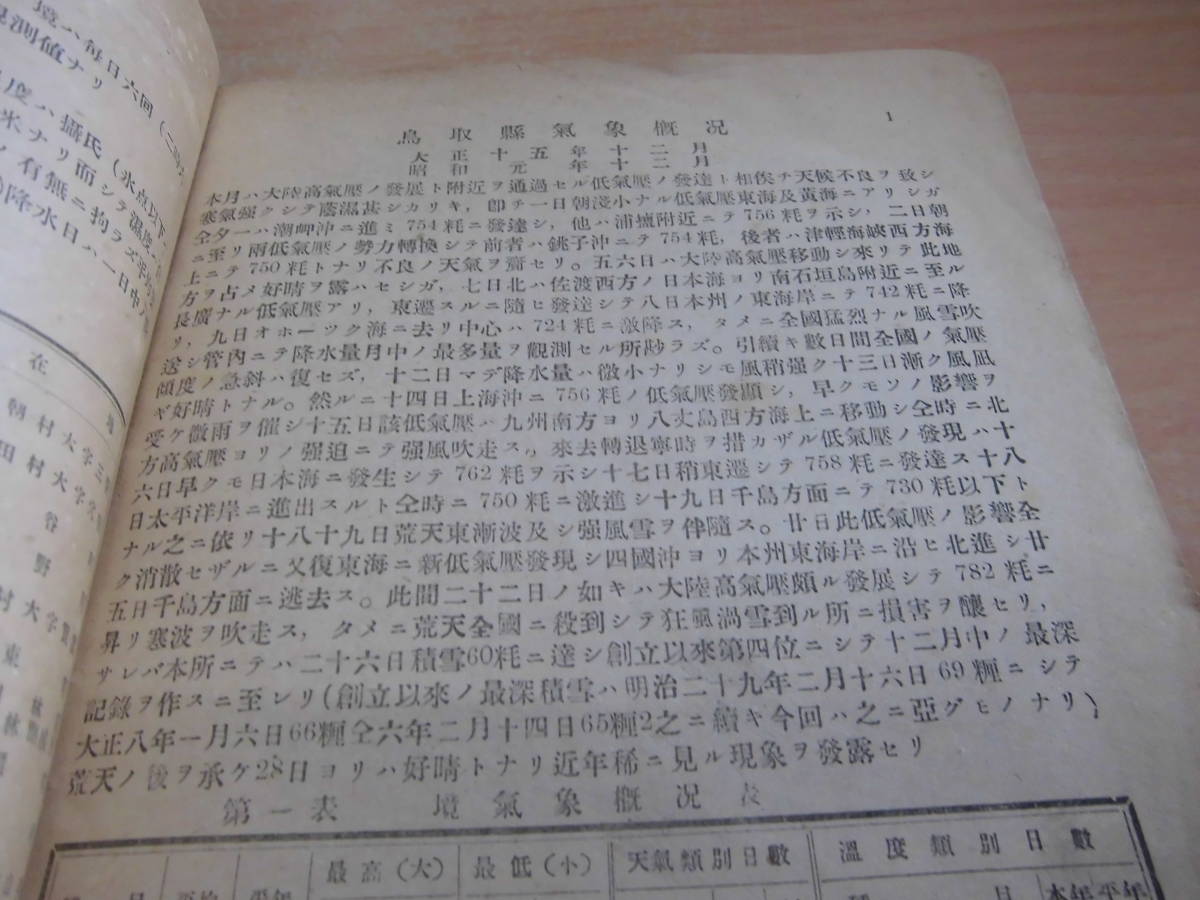 境ハ每日六回(二時
測値ナリ
度ハ攝氏(氷点以下
米ナリ而シテ濕度
ノ有無ニ拘ラズ平均
降水日ハ一日中
在
村大字三
村大字
谷
野
村大字
東
林
1
鳥取縣氣象概況
大正十五年十二月
昭和元年十二月
本月ハ大陸高氣壓ノ發展ト附近ヲ通過セル低氣壓ノ發達ト相俟チ天候不良ヲ致シ
寒氣强クシテ蔭濕甚シカリキ,卽チ一日朝淺小ナル低氣壓東海及黃海ニアリシガ
仝夕一ハ潮岬沖ニ進ミ754粍ニ發達シ,他ハ浦壇附近ニテ756粍ヲ示シ,二日朝
ニ至リ兩低氣壓ノ勢力轉換シテ前者ハ銚子沖ニテ754粍,後者ハ津輕海峽西方海
上ニテ750粍トナリ不良ノ天氣ヲ齎セリ。五六日ハ大陸高氣壓移動シ來リテ此地
方ヲ占メ好晴ヲ露ハセシガ,七日北ハ佐渡西方ノ日本海ヨリ南石垣島附近ニ至ル
長廣ナル低氣壓アリ,東遷スルニ隨ヒ發達シテ八日本州ノ東海岸ニテ742粍ニ降
リ,九日オホーツク海ニ去リ中心ハ724粍ニ激降ス,タメニ全國猛烈ナル風雪吹
送シ管內ニテ降水量月中ノ最多量ヲ觀測セル所尠ラズ。引續キ數日間全國ノ氣壓
傾度ノ急斜ハ復セズ,十二日マデ降水量ハ微小ナリシモ風稍强ク十三日漸ク風凪
ギ好晴トナル。然ルニ十四日上海沖ニ756粍ノ低氣壓發顯シ,早クモソノ影響ヲ
受ケ微雨ヲ催シ十五日該低氣壓ハ九州南方ヨリ八丈島西方海上ニ移動シ仝時ニ北
方高氣壓ヨリノ强迫ニテ强風吹走ス。來去轉退寧時ヲ措カザル低氣壓ノ發現ハ十
六日早クモ日本海ニ發生シテ762粍ヲ示シ十七日稍東遷シテ758粍ニ發達ス十八
日太平洋岸ニ進出スルト仝時ニ750粍ニ激進シ十九日千島方面ニテ730粍以下ト
ナル之ニ依リ十八十九日荒天東漸波及シ强風雪ヲ伴隨ス。廿日此低氣壓ノ影響全
ク消散セザルニ又復東海ニ新低氣壓發現シ四國沖ヨリ本州東海岸ニ沿ヒ北進シ廿
五日千島方面ニ逃去ス。此間二十二日ノ如キハ大陸高氣壓頗ル發展シテ782粍ニ
昇リ寒波ヲ吹走ス,タメニ荒天全國ニ殺到シテ狂風渦雪到ル所ニ損害ヲ釀セリ,
サレバ本所ニテハ二十六日積雪60粍ニ達シ創立以來第四位ニシテ十二月中ノ最深
記錄ヲ作スニ至レリ(創立以來ノ最深積雪ハ明治二十九年二月十六日69糎ニシテ
大正八年一月六日66糎仝六年二月十四日65糎2之ニ續キ今回ハ之ニ亞グモノナリ)
荒天ノ後ヲ承ケ28日ヨリハ好晴トナリ近年稀ニ見ル現象ヲ發露セリ
第一表 境氣象概況表
最高(大) 最低(小) 天氣類別日數 溫度類別日數
月 本年 平年